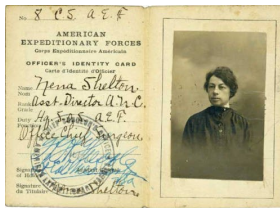 No. 8 C S A.E.F
AMERICAN
EXPEDITIONARY FORCES
Corps Expéditionnaire Américain
OFFICER'S IDENTITY CARD
Carte d'identité d'Officier
Name Nena Shelton
Nom
Rank Asst. Director A.N.C.
Grade
Duty Hq. S.O.S. A.E.F.
Office Chief Surgeon
Signature
of Holder
Signature
du Titulaire Shelton